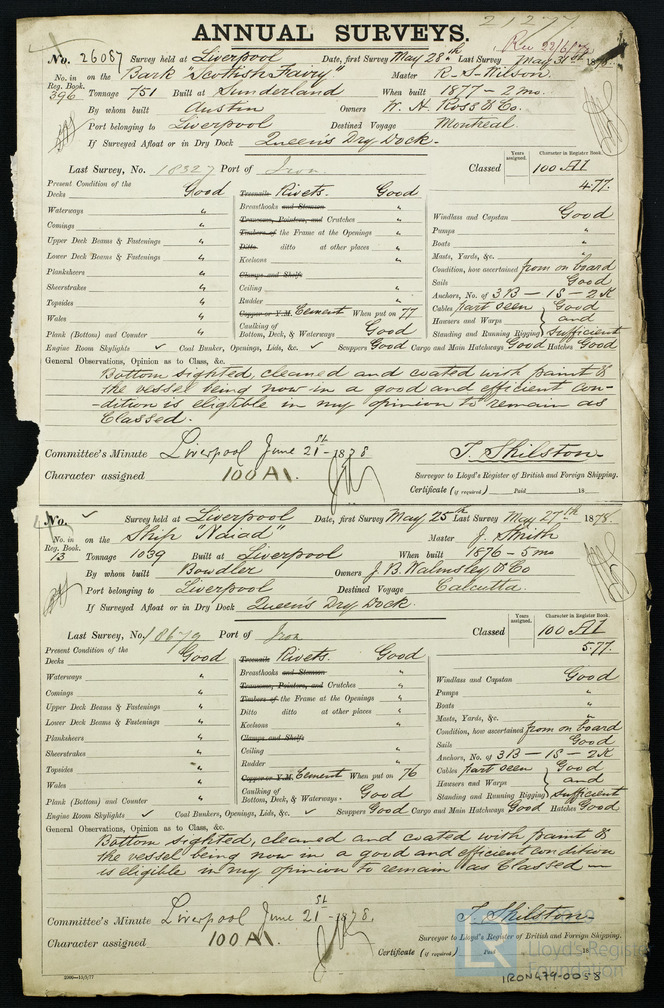 21277
ANNUAL SURVEYS.
Rec 22/6/78
No. 26087 Survey held at Liverpool Date, first Survey May 28th Last Survey May 31st 1878
No. in Reg. Book. 396 on the Bark "Scottish Fairy" Master R. S. Wilson.
Tonnage 751 Built at Sunderland When built 1877 - 2 mo.
By whom built Austin Owners W. H. Ross & Co.
Port belonging to Liverpool Destined Voyage Montreal.
If Surveyed Afloat or in Dry Dock Queen's Dry Dock.
Years assigned. Character in Register Book.
Last Survey, No. 18327 Port of Iron Classed 100 A1
4.77.
Present Condition of the
Decks Good Treenails Rivets. Good
Waterways " Breasthooks and Stemson "
Comings " Transoms, Pointers, and Crutches "
Upper Deck Beams & Fastenings " Timbers of the Frame at the Openings "
Lower Deck Beams & Fastenings " Ditto ditto at other places "
Planksheers " Keelsons "
Sheerstrakes " Clamps and Shelfs
Topsides " Ceiling "
Wales " Rudder "
Plank (Bottom) and Counter " Copper or Y.M. Cement When put on 77
Caulking of Bottom, Deck, & Waterways Good
Windlass and Capstan Good
Pumps "
Boats "
Masts, Yards, &c. "
Condition, how ascertained from on board
Sails Good
Anchors, No. of 3B - 1S - 2K
Cables part seen Good
Hawsers and Warps and
Standing and Running Rigging sufficient
Engine Room Skylights ✓ Coal Bunker, Openings, Lids, &c. ✓ Scuppers Good Cargo and Main Hatchways Good Hatches Good
General Observations, Opinion as to Class, &c.
Bottom sighted, cleaned and coated with paint &
the vessel being now in a good and efficient con-
-dition is eligible in my opinion to remain as
Classed.
Committee's Minute Liverpool June 21st 1878 T. Skilston
Character assigned 100 A1. Surveyor to Lloyd's Register of British and Foreign Shipping.
Certificate (if required) Paid 18
No. ✓ Survey held at Liverpool Date, first Survey May 25th Last Survey May 27th 1878.
No. in Reg. Book. 13 on the Ship "Naiad" Master J. Smith
Tonnage 1039 Built at Liverpool When built 1876 - 5 mo
By whom built Bowdler Owners J. B. Walmsley & Co
Port belonging to Liverpool Destined Voyage Calcutta.
If Surveyed Afloat or in Dry Dock Queen's Dry Dock.
Years assigned. Character in Register Book.
Last Survey, No. 18679 Port of Iron Classed 100 A1
5.77.
Present Condition of the
Decks Good Treenails Rivets. Good
Waterways " Breasthooks and Stemson "
Comings " Transoms, Pointers, and Crutches "
Upper Deck Beams & Fastenings " Timbers of the Frame at the Openings "
Lower Deck Beams & Fastenings " Ditto ditto at other places "
Planksheers " Keelsons "
Sheerstrakes " Clamps and Shelfs
Topsides " Ceiling "
Wales " Rudder "
Plank (Bottom) and Counter " Copper or Y.M. Cement When put on 76
Caulking of Bottom, Deck, & Waterways Good
Windlass and Capstan Good
Pumps "
Boats "
Masts, Yards, &c. "
Condition, how ascertained from on board
Sails Good
Anchors, No. of 3B - 1S - 2K
Cables part seen Good
Hawsers and Warps and
Standing and Running Rigging sufficient
Engine Room Skylights ✓ Coal Bunkers, Openings, Lids, &c. ✓ Scuppers Good Cargo and Main Hatchways Good Hatches Good
General Observations, Opinion as to Class, &c.
Bottom sighted, cleaned and coated with paint &
the vessel being now in a good and efficient condition
is eligible in my opinion to remain as Classed —
Committee's Minute Liverpool June 21st 1878, T. Skilston
Character assigned 100 A1. Surveyor to Lloyd's Register of British and Foreign Shipping.
Certificate (if required) Paid 18
Lloyd's Register
Foundation
IRON479-0058